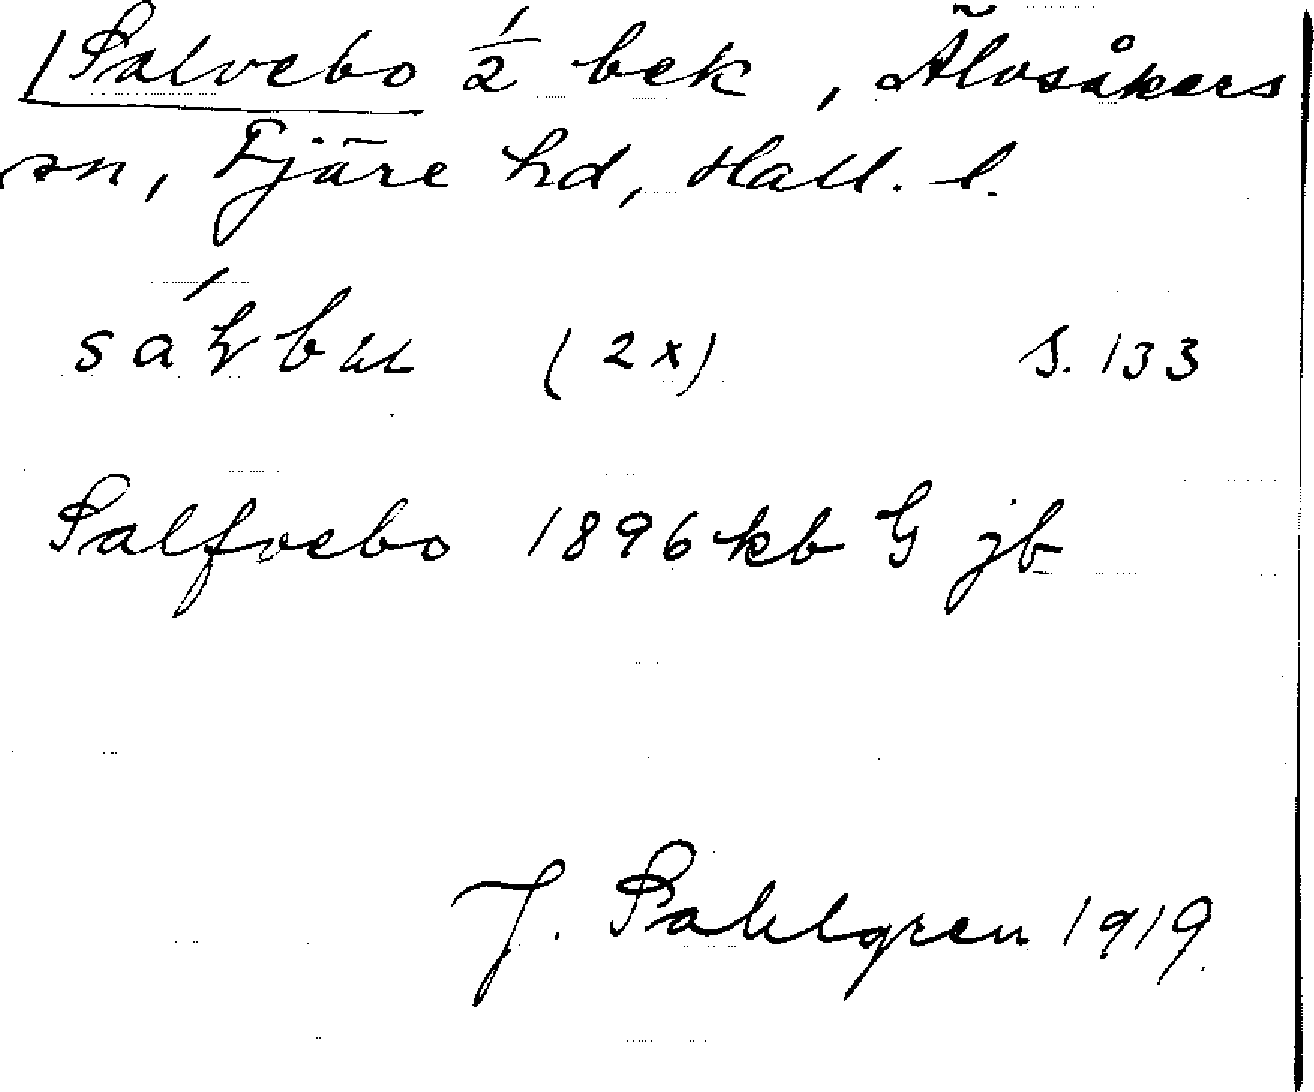 Salvebo ½ bek, Älvsåkers
sn, Fjäre hd, Hall. l.
(2x) S. 133
Salfvebo 1896 kb G jb
J. Sahlgren 1919.